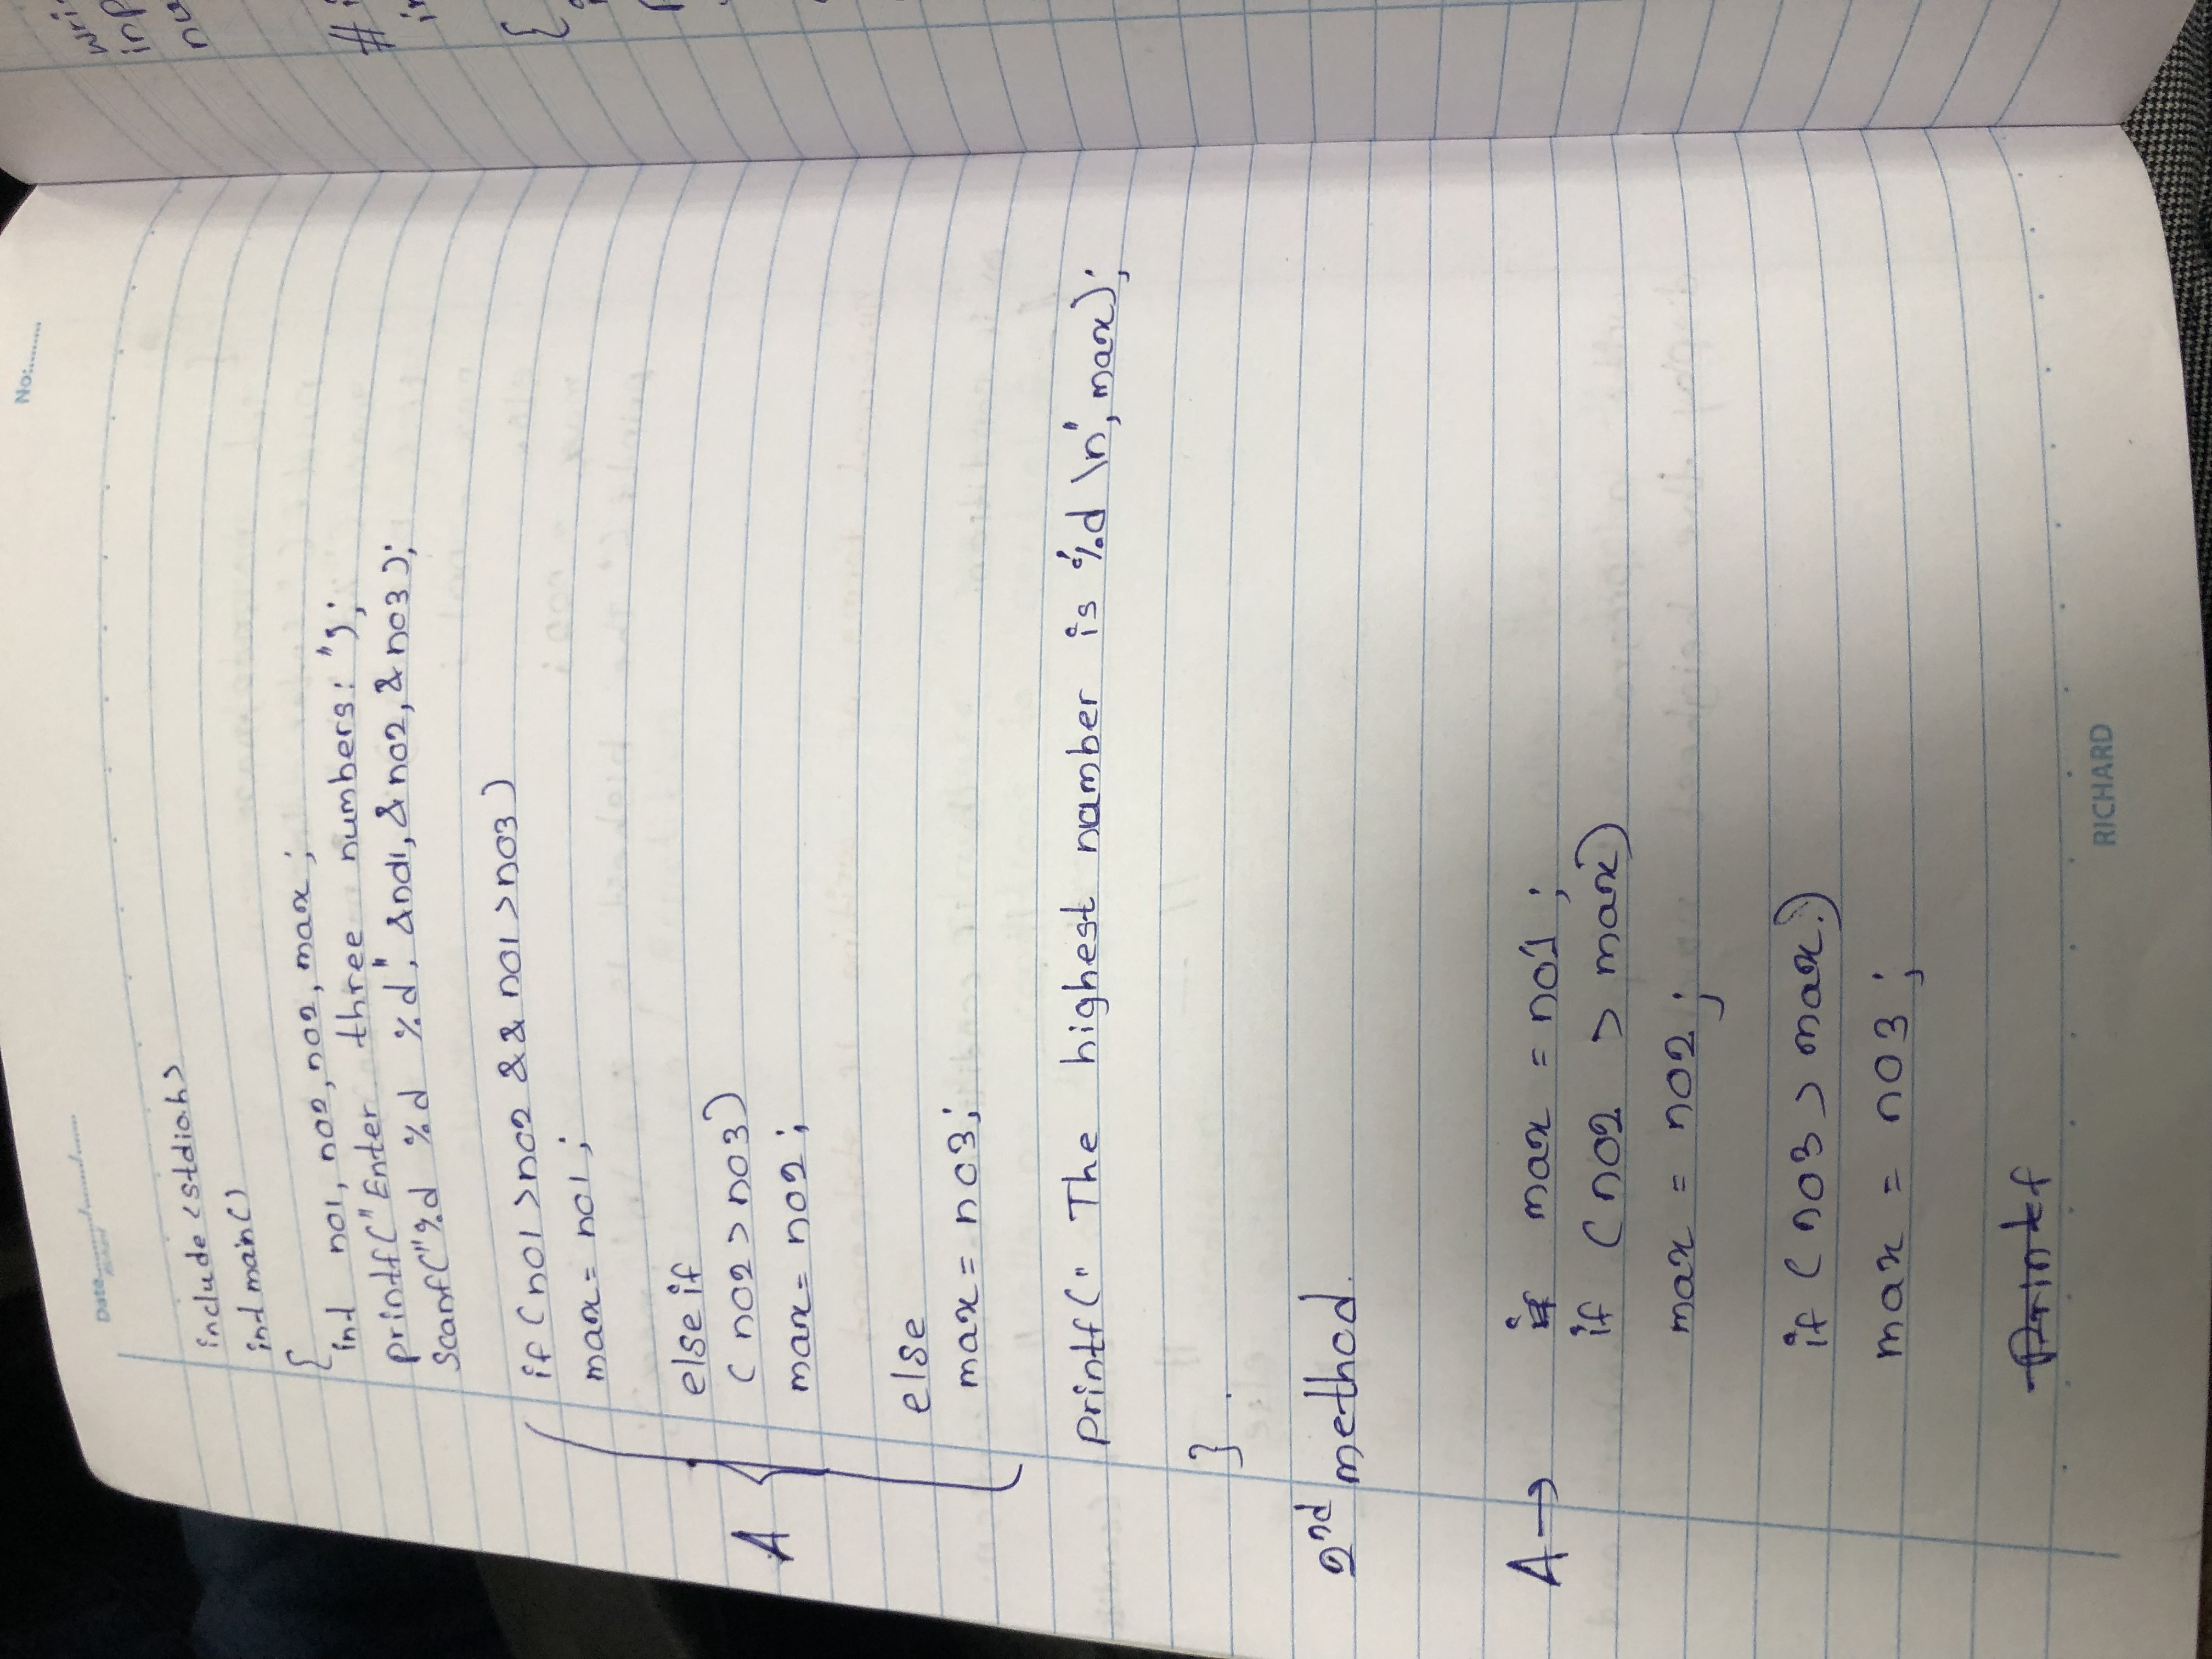 No:.........
Date............/........./.......
Richard
include <stdio.h>
int main()
{
int no1, no2, no2, max ;
printf("Enter three numbers: ");
Scanf("%d %d %d", &no1, & no2, & no3 );
if (no1 >no2 && no1 >no3)
max = no1 ;
else if
( no2 > no3)
A {
max = no2 ;
else
max = no3;
printf(" The highest number is %d \n", max);
} .
2nd method.
A → if max = no1 ;
if (no2 > max)
max = no2 ;
if (no3 > max.)
max = no3 ;
Printf
RICHARD
wri
inp
nu
# i
in
{